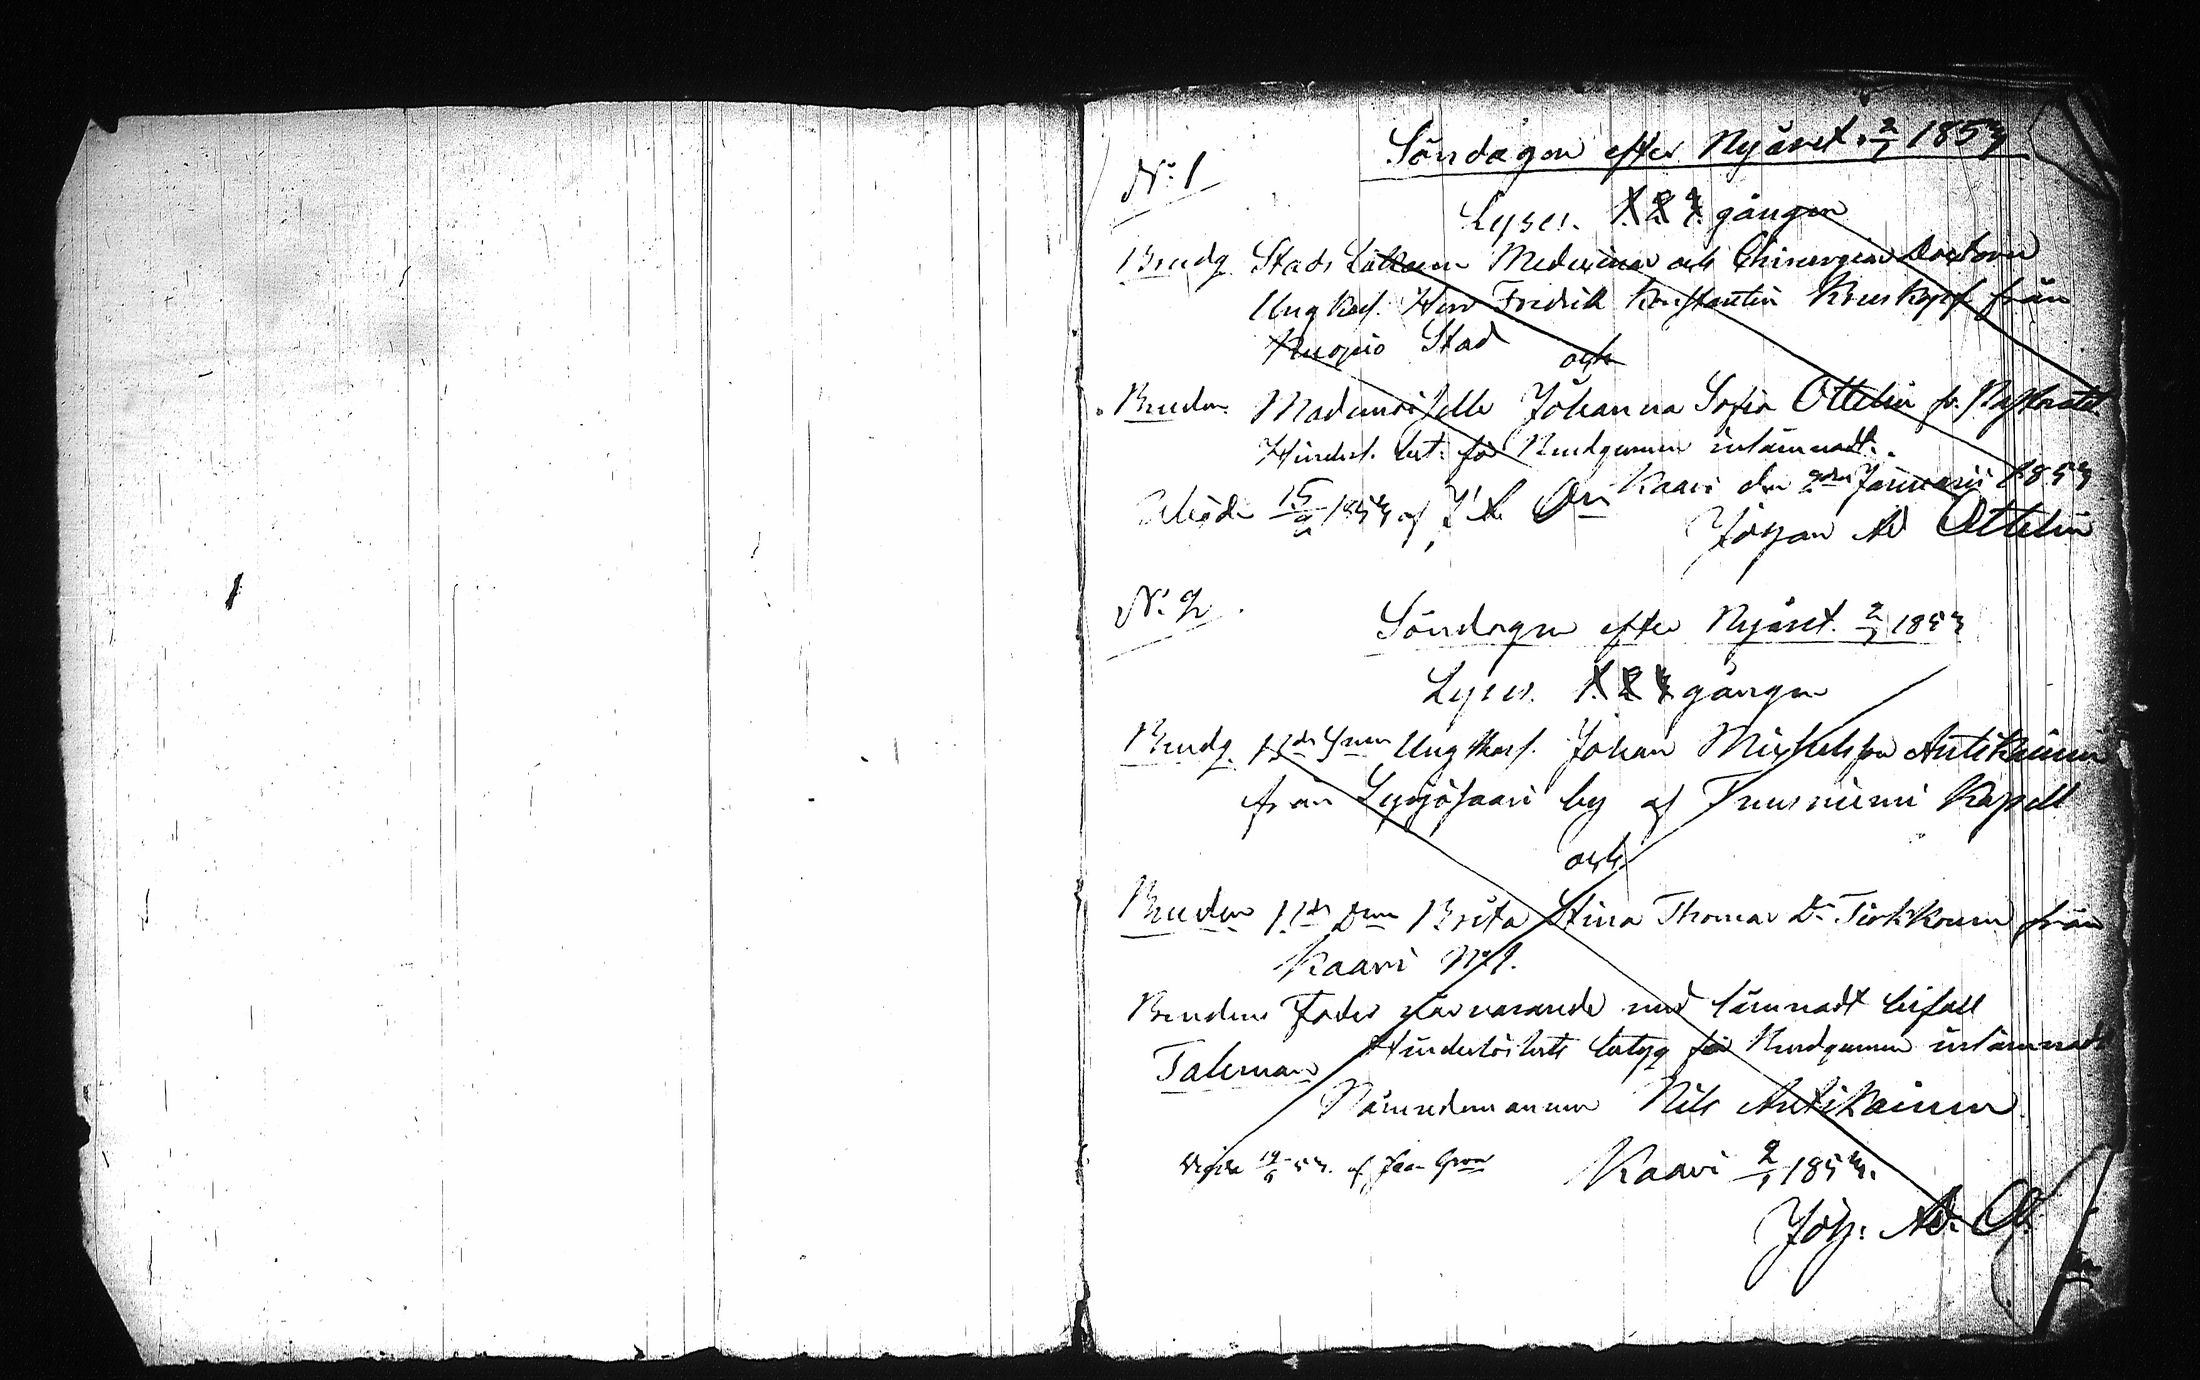 N:o 1
Söndagen efter Nyåret 2/1 1853
Lyses. 1. 2. 3. gången
Brudg. Stads Läkaren Medicinae och Chirurgiae Doctorn
Ungkarl. Herr Fredrik Konstantin Kruskopf från
Kuopio Stad
och
Bruden Mademoiselle Johanna Sofia Ottelin fr. Pastoratet
Hindersl. bet. för Brudgumen inlämnadt.
Kaavi den 2dra Januarii 1853
Johan Ad Ottelin
N:o 2
Söndagen efter Nyåret 2/1 1853
Lyses. 1. 2. 3. gången
Brudg. Bdesonen Ungkarl. Johan Michelsson Antikainen
från Lypysaari by af Tuusniemi Kapell
och
Bruden Bde Dren Brita Stina Thomas Dr Tirkkonen från
Kaavi N:o 1.
Brudens Fader närvarande med lämnadt bifall
Hinderlöshets betyg för Brudgumen inlämnadt
Taleman
Nämndemannen Nils Antikainen
Vigde 19/6 53. af
Kaavi 2/1 1853.
Joh: Ad. O.